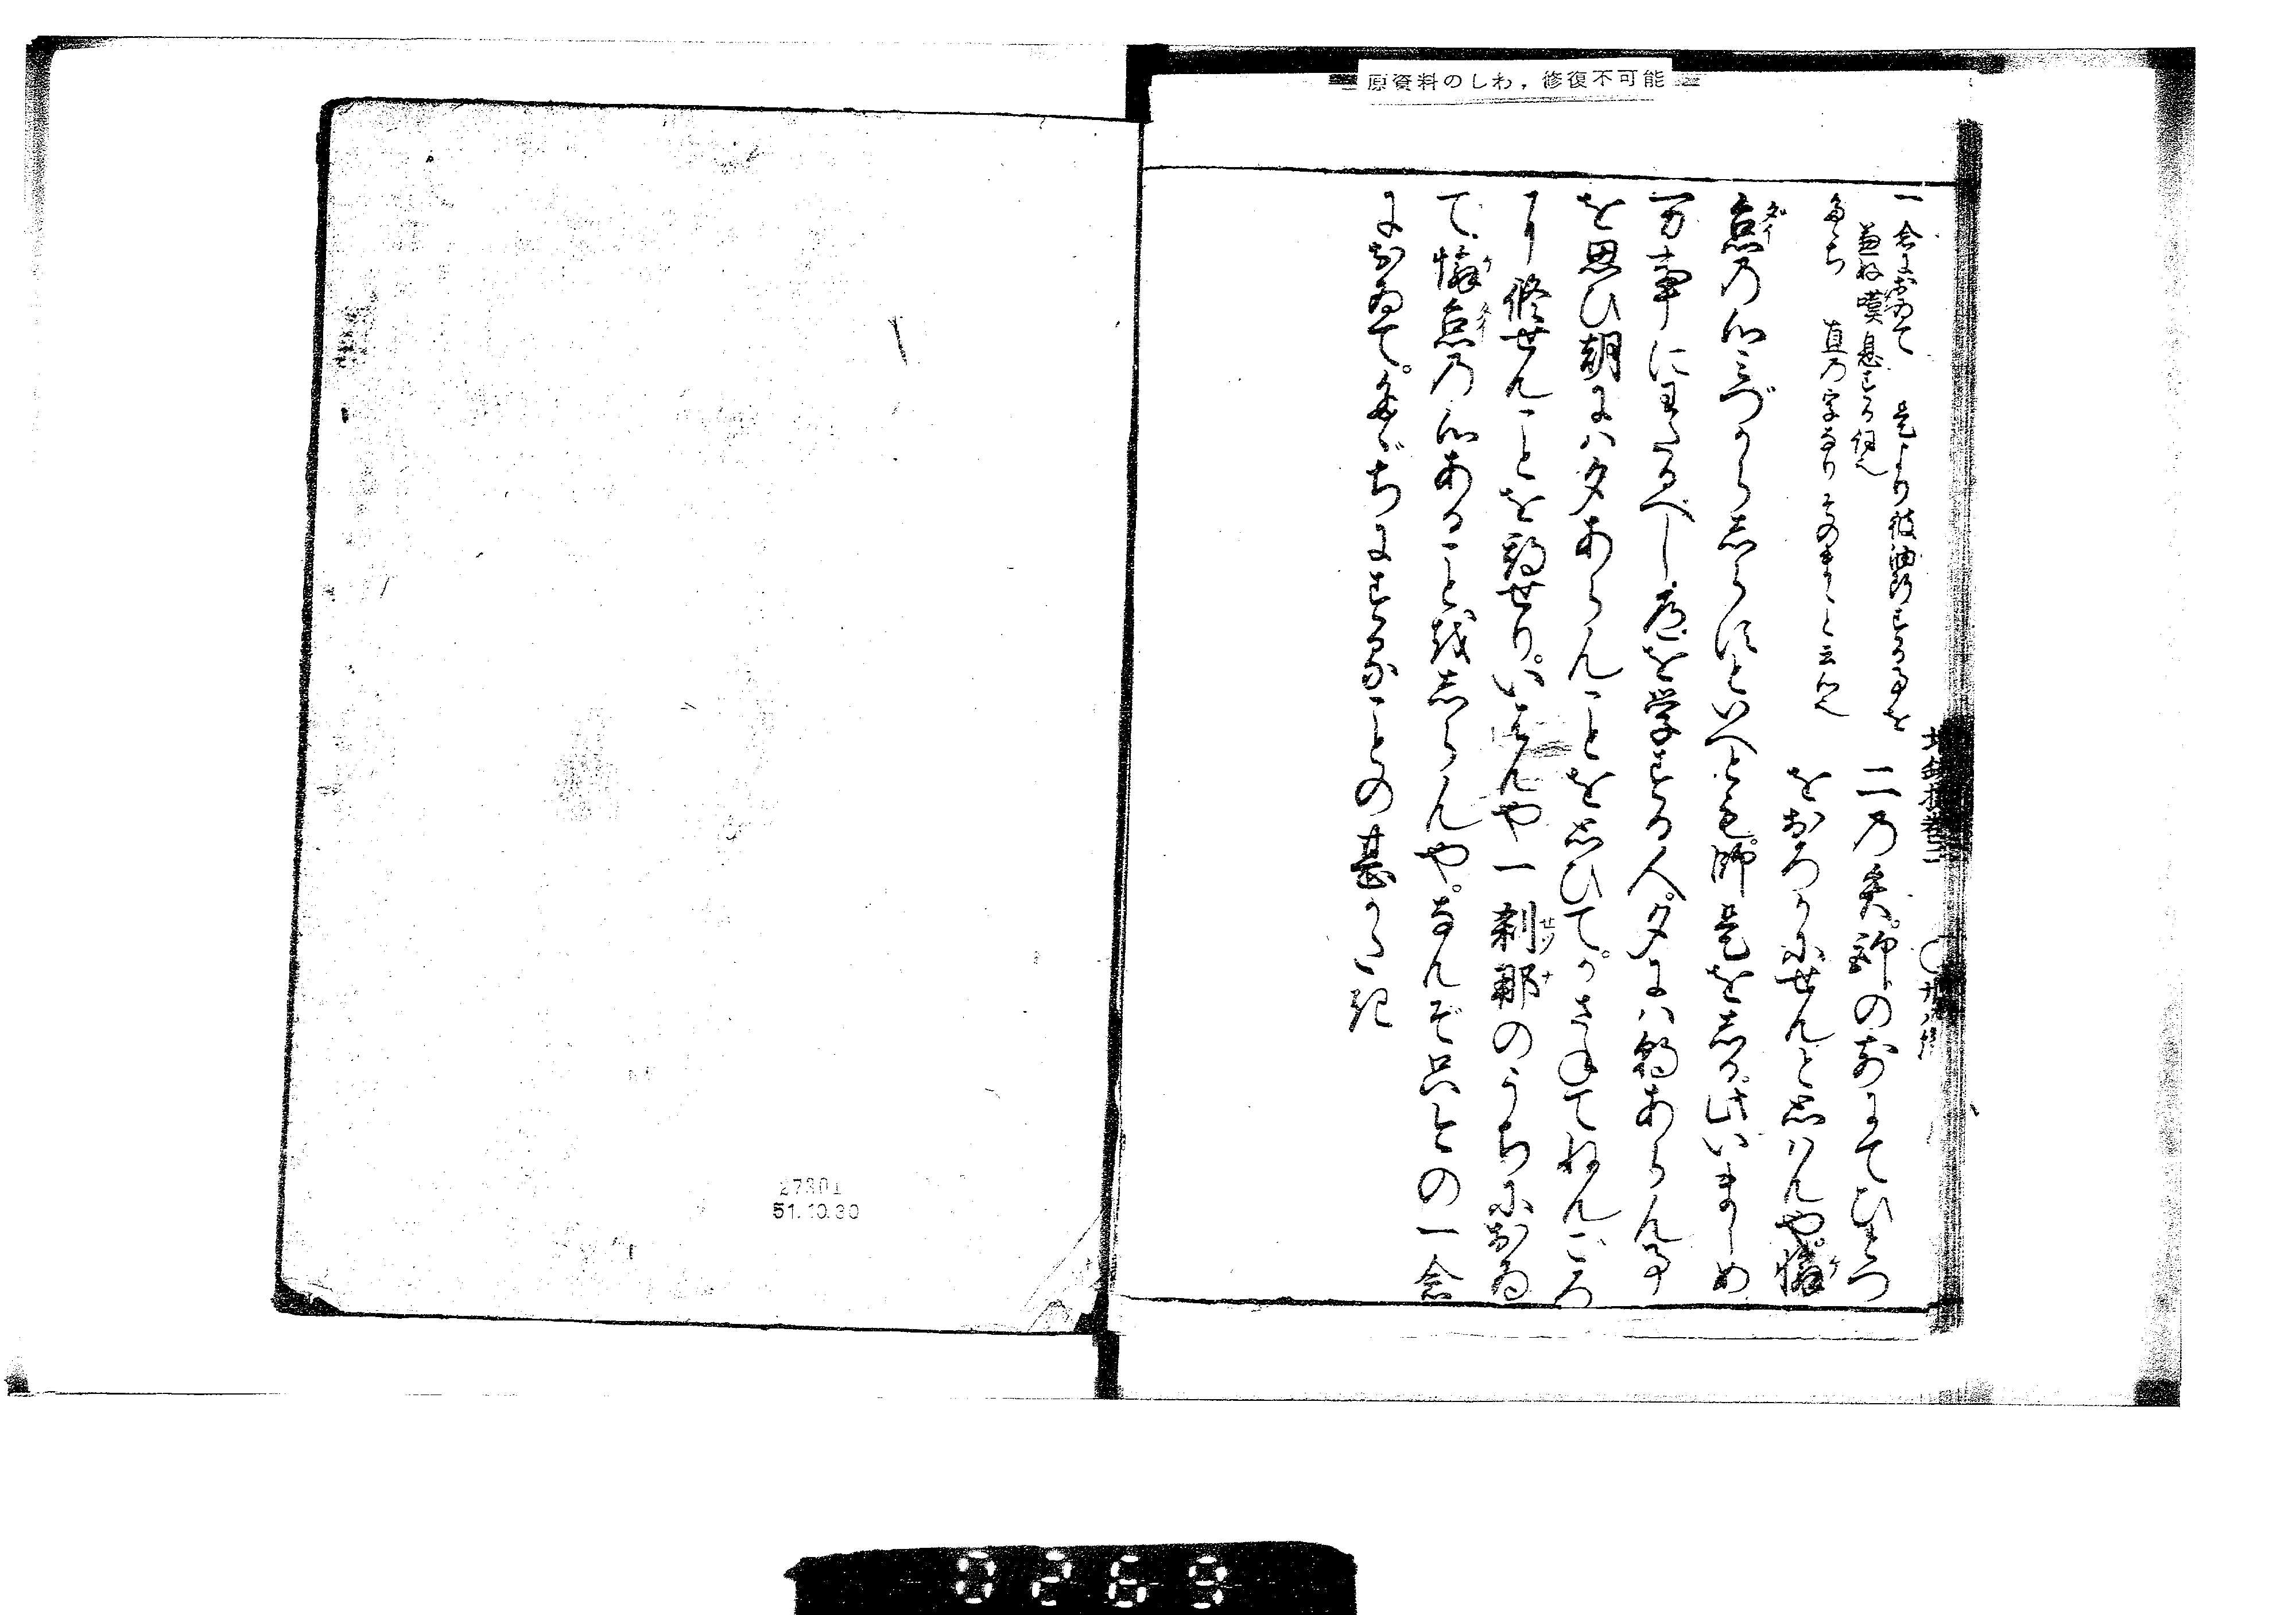 原資料のしわ，修復不可能
一念におゐて　是より彼油断する事を
兼ね嘆息する詞也
たゝち　直の字なりそのまゝと云心也
二乃矢。師のまへにてひとつ
をおろかにせんと思ハんや。懈
怠乃心みづからしらずといへども。師是をしる。此いましめ
万事にわたるべし。道を学する人。夕にハ朝あらん事
を思ひ朝にハ夕あらんことを思ひて。かさねてねんごろ
に修せんことを期せり。いはんや一刹那のうちにおゐ
て。懈怠乃心あること越しらんや。なんぞ只今の一念
におゐて。たゞちにすることの甚かたき
27801
51.10.30
0269